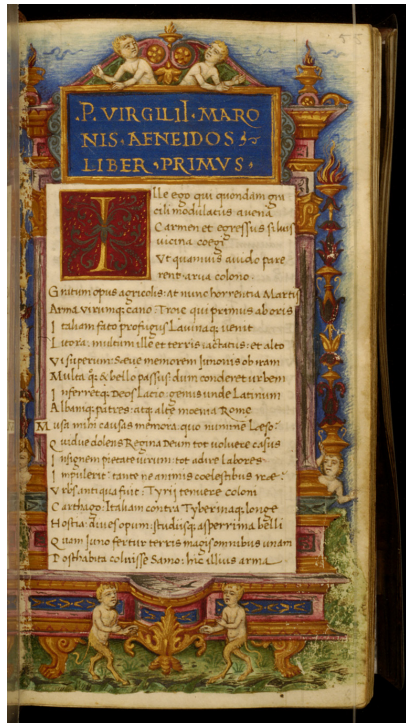 .P. VIRGILII. MARO
NIS. AENEIDOS
LIBER. PRIMUS.
Ille ego qui quondam gra
cili modulatus auena
Carmen et egressus siluis
uicina coegi
Vt quamuis auido pare
rent arua colono.
Gratum opus agricolis: At nunc horrentia Martis
Arma Virumq; cano: Troie qui primus ab oris
Italiam fato profugus Lauinaq; uenit
Litora: multum ille et terris iactatus: et alto
Vi superum: Saeue memorem Junonis ob iram
Multa q; & bello passus: dum conderet urbem
Inferretq; Deos Lacio: genus unde Latinum
Albaniq; patres: atq; alte moenia Rome
Musa mihi causas memora: quo numine Leso:
Quidue dolens Regina Deum tot voluere casus
Insignem pietate uirum: tot adire Labores
Impulerit: tante ne animis coelestibus irae:
Vrbs antiqua fuit: Tyrii tenuere coloni
Carthago: Italiam contra Tyberinaq; longe
Hostia: diues opum: studiisq; asperrima belli
Quam Juno fertur terris magis omnibus unam
Posthabita coluisse Samo: hic illius arma